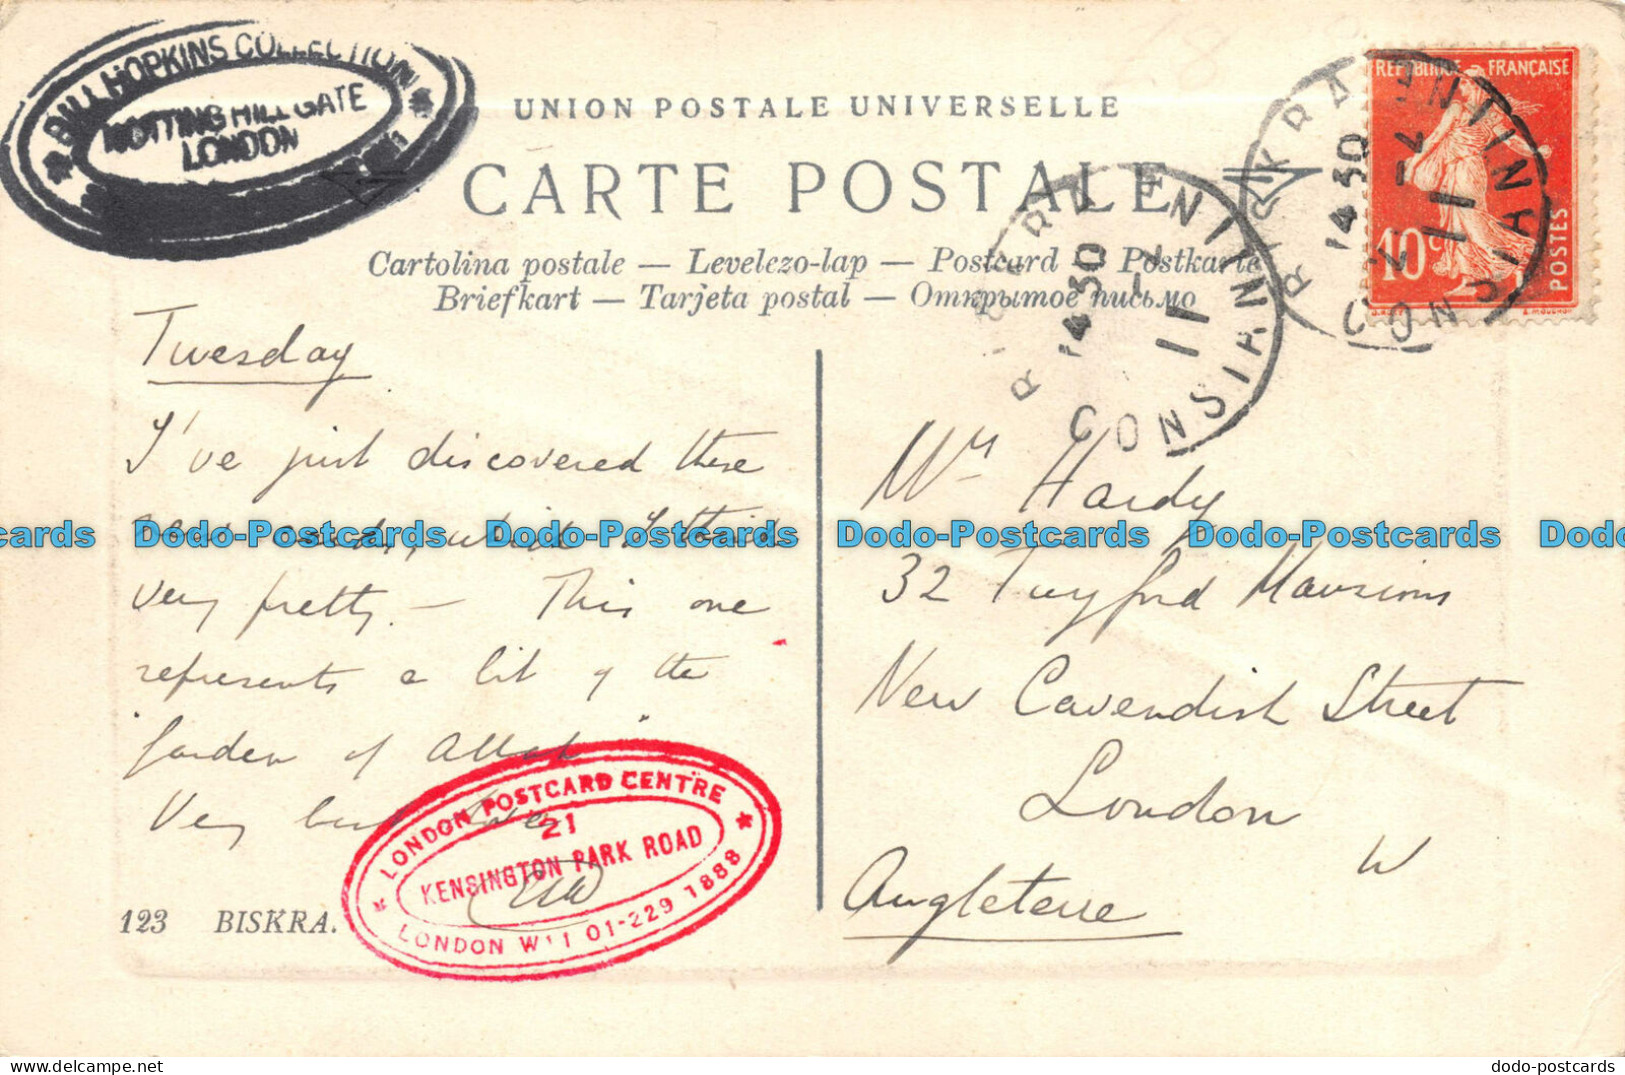 BILL HOPKINS COLLECTION
NOTTING HILL GATE
LONDON
UNION POSTALE UNIVERSELLE
CARTE POSTALE
Cartolina postale — Levelezo-lap — Postcard — Postkarte
Briefkart — Tarjeta postal — Открытое письмо
REPUBLIQUE FRANÇAISE
10c
POSTES
BISKRA
14 30
11
CONSTANTINE
Tuesday
I've just discovered these
new cards, which I think
very pretty. — This one
represents a bit of the
"Garden of Allah"
Very best
Mrs Hardy
32 Twyford Mansions
New Cavendish Street
London
W
Angleterre
123 BISKRA.
LONDON POSTCARD CENTRE
21
KENSINGTON PARK ROAD
LONDON W11 01-229 1888
Dodo-Postcards Dodo-Postcards Dodo-Postcards Dodo-Postcards
dodo-postcards